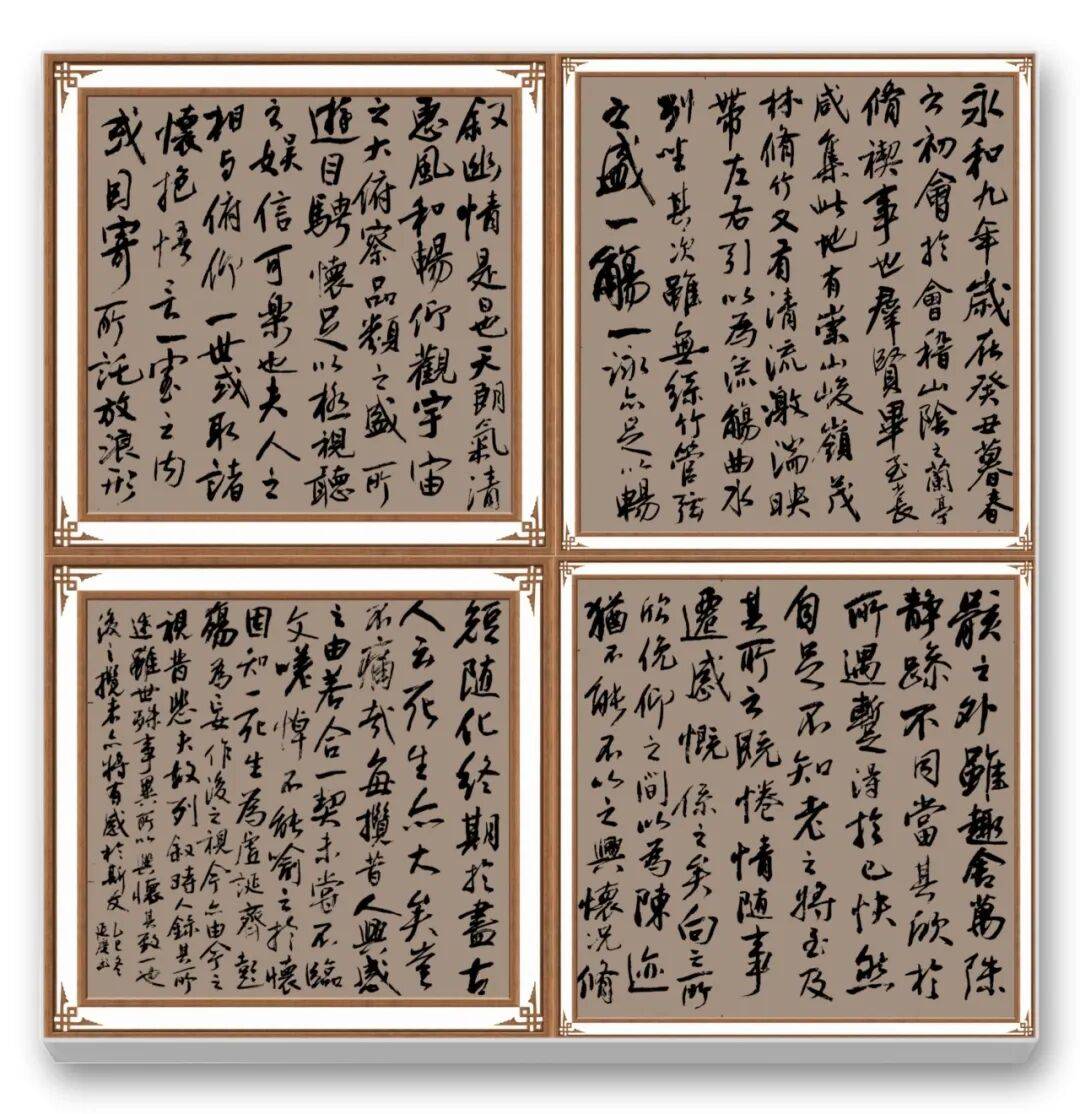 永和九年歲在癸丑暮春
之初會於會稽山陰之蘭亭
脩禊事也羣賢畢至少長
咸集此地有崇山峻嶺茂
林脩竹又有清流激湍映
帶左右引以為流觴曲水
列坐其次雖無絲竹管弦
之盛一觴一詠亦足以暢
叙幽情是日也天朗氣清
惠風和暢仰觀宇宙
之大俯察品類之盛所
遊目騁懷足以極視聽
之娛信可樂也夫人之
相与俯仰一世或取諸
懷抱悟言一室之内
或因寄所託放浪形
骸之外雖趣舍萬殊
静躁不同當其欣於
所遇蹔得於己快然
自足不知老之將至及
其所之既惓情隨事
遷感慨係之矣向之所
欣俛仰之間以為陳迹
猶不能不以之興懷況脩
短隨化終期於盡古
人云死生亦大矣豈
不痛哉每攬昔人興感
之由若合一契未嘗不臨
文嗟悼不能喻之於懷
固知一死生為虛誕齊彭
殤為妄作後之視今亦由今之
視昔悲夫故列叙時人錄其所
述雖世殊事異所以興懷其致一也
後之攬者亦將有感於斯文
乙巳冬